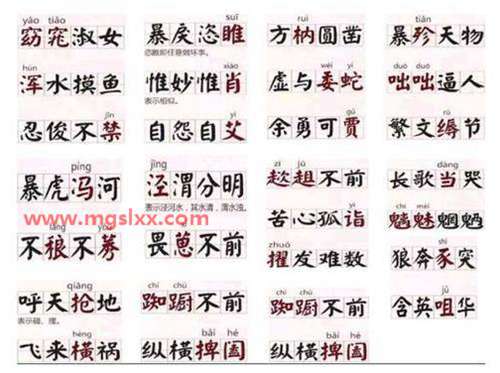 yáo tiǎo
窈窕淑女
suī
暴戾恣睢
恣睢即任意做坏事。
ruì
方枘圆凿
tiǎn
暴殄天物
hún
浑水摸鱼
xiào
惟妙惟肖
表示相似。
wēi yí
虚与委蛇
duō duō
咄咄逼人
jīn
忍俊不禁
yì
自怨自艾
gǔ
余勇可贾
rù
繁文缛节
píng
暴虎冯河
jīng
泾渭分明
表示泾河水,其水清,渭水浊。
zī jū
趑趄不前
dàng
长歌当哭
www.mgslxx.com
láng yǒu
不稂不莠
畏葸不前
yì
苦心孤诣
chī mèi
魑魅魍魉
zhuó
擢发难数
狼奔豕突
qiāng
呼天抢地
表示碰、撞。
chí chú
踟蹰不前
chí chú
踟蹰不前
jǔ
含英咀华
hèng
飞来横祸
bǎi hé
纵横捭阖
bǎi hé
纵横捭阖